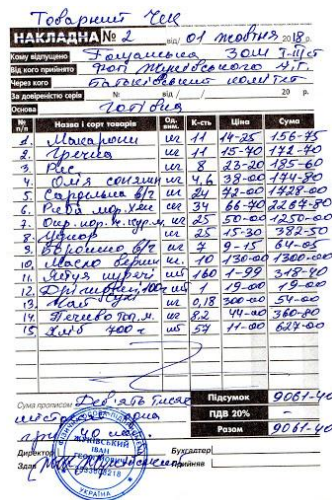 Товарний Чек
НАКЛАДНА № 2 від/ 01 жовтня 2018 р.
Кому відпущено ЗОШ І-ІІІ ст
Від кого прийнято ФОП Жуківський І.Г.
Через кого Батьківський комітет
За довіреністю серія № від/ / 20 р.
Основа Готівка
№ п/п Назва і сорт товарів Од. вим. К-сть Ціна Сума
1. Макарони кг 11 14-25 156-75
2. Гречка кг 11 15-70 172-70
3. Рис кг 8 23-20 185-60
4. Олія соняшн кг 4,6 38-00 174-80
5. в/г кг 24 72-00 1728-00
6. Риба мор. Хек кг 34 66-70 2267-80
7. кг 25 50-00 1250-00
8. Цукор кг 25 15-30 382-50
9. Борошно в/г кг 7 9-15 64-05
10. Масло вершк кг 10 130-00 1300-00
11. Яйця курячі шт 160 1-99 318-40
12. Дріжджі 100г шт 1 19-00 19-00
13. Чай кг 0,18 300-00 54-00
14. Печиво кг 8,2 44-00 360-80
15 700 г шт 57 11-00 627-00
Сума прописом Дев'ять тисяч Підсумок 9061-40
шістдесят одна ПДВ 20% -
грн 40 коп. Разом 9061-40
Директор Бухгалтер
Здав Прийняв
ЖУКІВСЬКИЙ
ІВАН
УКРАЇНА